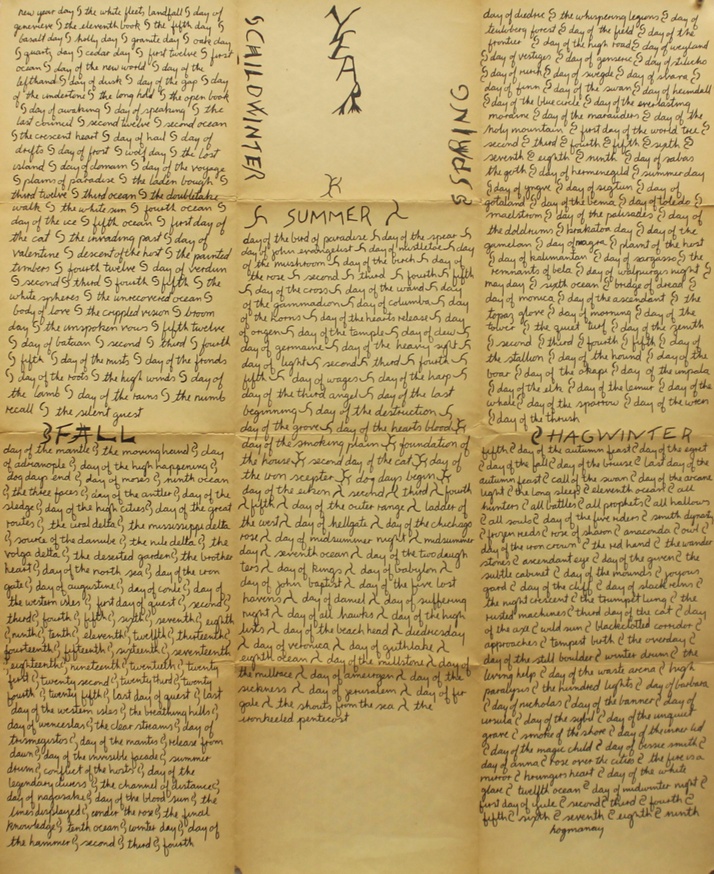 YEAR
SCHILDWINTER
new year day § the white fleets landfall § day of
genevieve § the eleventh book § the fifth day §
basalt day § holly day § granite day § oak day
§ quartz day § cedar day § first twelve § first
ocean § day of the new world § day of the
lefthand § day of dusk § day of the gap § day
of the undertone § the long hold § the open book
§ day of awaking § day of speaking § the
last council § second twelve § second ocean
§ the crescent heart § day of hail § day of
drifts § day of frost § wolf day § the lost
island § day of domain § day of the voyage
§ plains of paradise § the laden bough §
third twelve § third ocean § the doubletake
walk § the white sun § fourth ocean §
day of the ice § fifth ocean § first day of
the cat § the invading past § day of
valentine § descent of the host § the painted
timbers § fourth twelve § day of verdun
§ second § third § fourth § fifth § the
white spheres § the unrecovered ocean §
body of love § the crippled vision § broom
day § the unspoken vows § fifth twelve
§ day of bataan § second § third § fourth
§ fifth § day of the mists § day of the fronds
§ day of the roots § the high winds § day of
the lamb § day of the rains § the numb
recall § the silent guest
SPRING
day of diedric § the whispering legions § day of
teutoberg forest § day of the field § day of the
frontier § day of the high road § day of weyland
§ day of vestiges § day of genseric § day of stilicho
§ day of rurik § day of swegde § day of skane §
day of finn § day of the swan § day of heimdall
§ day of the blue circle § day of the everlasting
moraine § day of the marauders § day of the
holy mountain § first day of the world tree §
second § third § fourth § fifth § sixth §
seventh § eighth § ninth § day of sabas
the goth § day of hermenegild § summer day
§ day of yngve § day of sigtun § day of
gotaland § day of the bema § day of toledo §
maelstrom § day of the palisades § day of
the doldrums § krakatoa day § day of the
gamelan § day of magra § plaint of the host
§ day of kalimantan § day of sargasso § the
remnants of bela § day of walpurgis night §
may day § sixth ocean § bridge of dread §
day of monica § day of the ascendant § the
topaz glove § day of morning § day of the
tower § the quiet turf § day of the zenith
§ second § third § fourth § fifth § day of
the stallion § day of the hound § day of the
boar § day of the okapi § day of the impala
§ day of the elk § day of the lemur § day of the
whale § day of the sparrow § day of the wren
§ day of the thrush
SUMMER
day of the bird of paradise § day of the spear §
day of john evangelist § day of mistletoe § day
of the mushroom § day of the birch § day of
the rose § second § third § fourth § fifth
§ day of the cross § day of the wand § day
of the gammadion § day of columba § day of
the horns § day of the hearts release § day
of origen § day of the temple § day of dew §
day of germaine § day of the heavy sight §
day of light § second § third § fourth §
fifth § day of wages § day of the harp §
day of the third angel § day of the last
beginning § day of the destruction §
day of the grove § day of the hearts blood §
day of the smoking plain § foundation of
the house § second day of the cat § day of
the iron scepter § dog days begin §
day of the citron § second § third § fourth
§ fifth § day of the outer range § ladder of
the west § day of hellgate § day of the chichago
rose § day of midsummer night § midsummer
day § seventh ocean § day of the two daugh
ters § day of kings § day of babylon §
day of john baptist § day of the five lost
havens § day of daniel § day of suffering
night § day of all hawks § day of the high
lists § day of the beach head § diedresday
§ day of veronica § day of guthlake §
eighth ocean § day of the millstone § day of
the millrace § day of amergen § day of the
sickness § day of jerusalem § day of fer
gale § the shouts from the sea § the
ironheeled pentecost
FALL
day of the mantle § the moving hand § day
of adrianople § day of the high happening §
dog days end § day of moses § ninth ocean
§ the three faces § day of the antler § day of the
sledge § day of the high cities § day of the great
routes § the ural delta § the mississippi delta
§ source of the danube § the nile delta § the
volga delta § the deserted garden § the brother
heart § day of the north sea § day of the iron
gate § day of augustine § day of conle § day of
the western isles § first day of quest § second §
third § fourth § fifth § sixth § seventh § eighth
§ ninth § tenth § eleventh § twelfth § thirteenth §
fourteenth § fifteenth § sixteenth § seventeenth
§ eighteenth § nineteenth § twentieth § twenty
first § twenty second § twenty third § twenty
fourth § twenty fifth § last day of quest § last
day of the western isles § the breathing hills §
day of wenceslas § the clear streams § day of
trismegistos § day of the mantis § release from
dawn § day of the invisible facade § summer
drum § conflict of the hosts § day of the
legendary divers § the channel of distance §
day of nagasake § day of the blood sun § the
lines displayed § under the rose § the final
knowledge § tenth ocean § winter day § day of
the hammer § second § third § fourth
HAGWINTER
fifth § day of the autumn feast § day of the egret
§ day of the fall § day of the bruise § last day of the
autumn feast § call of the swan § day of the arcane
light § the long sleep § eleventh ocean § all
hunters § all battles § all prophets § all hallows
§ all souls § day of the five riders § smith dynasty
§ frozen reeds § rose of sharon § anaconda § owl §
day of the iron crown § the red hand § the wander
stones § ascendant eye § day of the groven § the
subtle cabinet § day of the mounds § joyous
gard § day of the cliff § the slack reins §
the night crescent § the trumpet lung § the
rusted machines § third day of the cat § day
of the axe § wild sun § blackclotted corridor §
approaches § tempest birth § the overday §
day of the still boulder § winter drum § the
living help § day of the waste arena § high
paralysis § the hundred lights § day of barbara
§ day of nicholas § day of the banner § day of
ursula § day of the sybil § day of the unquiet
grave § smoke of the shore § day of the inner lid
§ day of the magic child § day of bessie smith §
day of anna § rose over the cities § the fire is a
mirror § hrungers heart § day of the white
glare § twelfth ocean § day of midwinter night §
first day of yule § second § third § fourth §
fifth § sixth § seventh § eighth § ninth
hogmanay